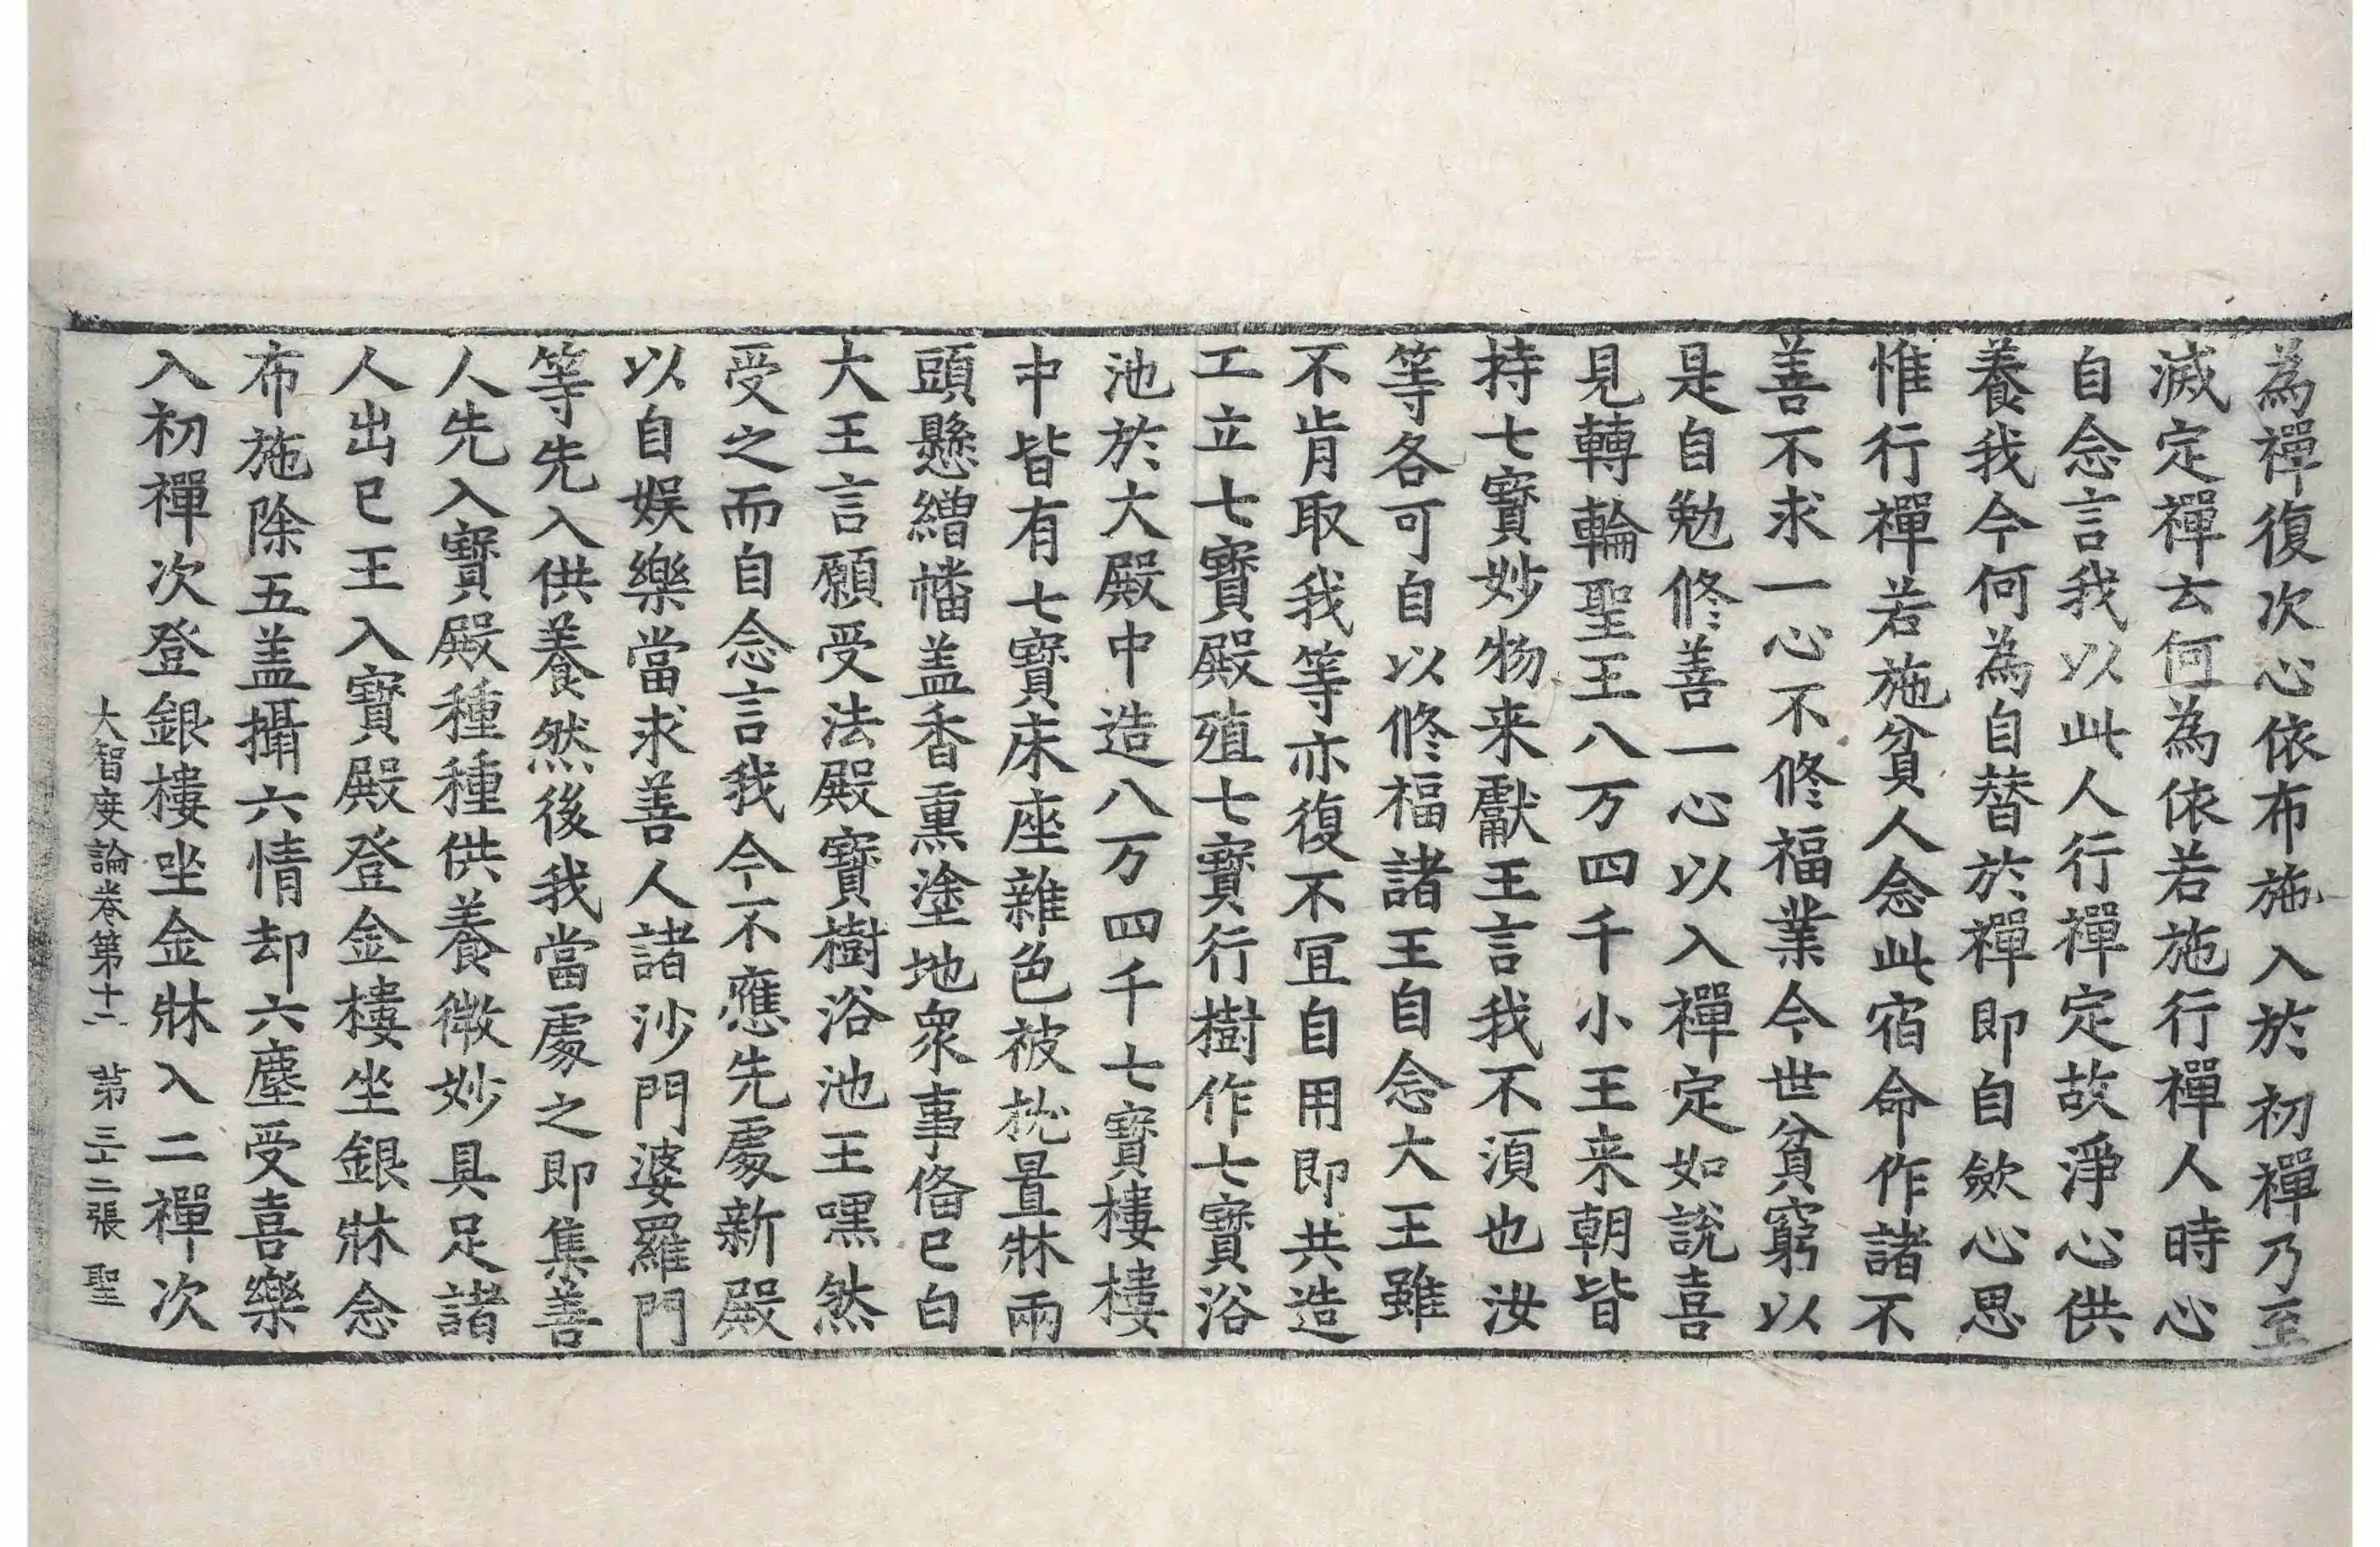 為禪復次心依布施入於初禪乃至
滅定禪云何為依若施行禪人時心
自念言我以此人行禪定故淨心供
養我今何為自替於禪即自歛心思
惟行禪若施貧人念此宿命作諸不
善不求一心不修福業今世貧窮以
是自勉修善一心以入禪定如說喜
見轉輪聖王八万四千小王来朝皆
持七寶妙物来獻王言我不湏也汝
等各可自以修福諸王自念大王雖
不肯取我等亦復不冝自用即共造
工立七寶殿殖七寶行樹作七寶浴
池於大殿中造八万四千七寶樓樓
中皆有七寶床座雜色被枕置牀兩
頭懸繒幡盖香熏塗地衆事俻已白
大王言願受法殿寶樹浴池王嘿然
受之而自念言我今不應先處新殿
以自娛樂當求善人諸沙門婆羅門
等先入供養然後我當處之即集善
人先入寶殿種種供養微妙具足諸
人出已王入寶殿登金樓坐銀牀念
布施除五盖攝六情却六塵受喜樂
入初禪次登銀樓坐金牀入二禪次
大智度論卷第十二 第三十二張 聖